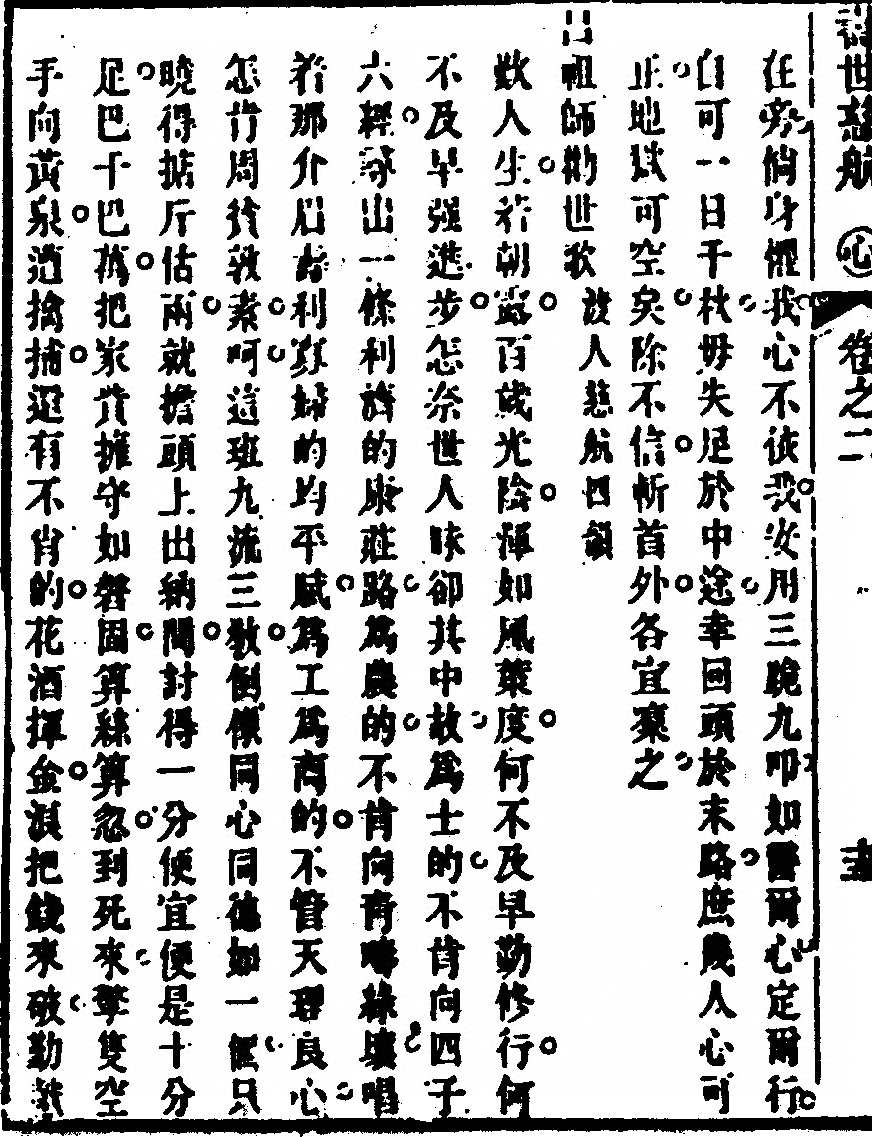 世慈航 心 卷之二
在旁倘身懼我心不彼我安用三跪九叩如醫爾心定爾行
自可一日千秋毋失足於中途幸回頭於末路庶幾人心可
正地獄可空矣除不信斬首外各宜稟之
呂祖師勸世歌 渡人慈航四韻
歎人生若朝露百歲光陰渾如風葉度何不及早勤修行何
不及早强進步怎奈世人昧卻其中故爲士的不肯向四子
六經尋出一條利濟的康莊路爲農的不肯向青疇綠壤唱
若那介眉壽利算婦的均平賦爲工爲商的不管天理良心
怎肯周貧敦素呵這班九流三教倒像同心同德如一個只
曉得掂斤估兩就擔頭上出納間討得一分便宜便是十分
足巴千巴萬把家貲擁守如磐固算絲算忽到死來擎隻空
手向黃泉遭擒捕還有不肖的花酒揮金浪把錢來破勸